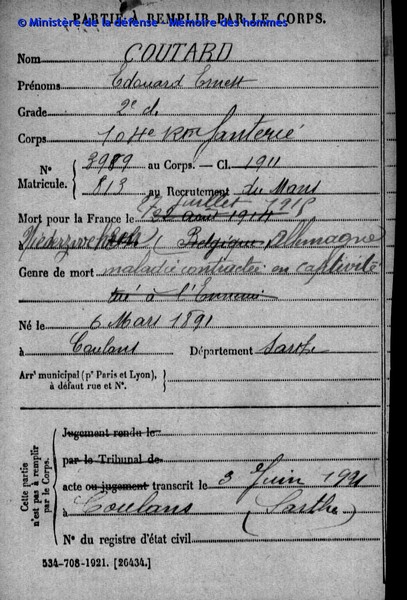 PARTIE À REMPLIR PAR LE CORPS.
© Ministère de la défense - Mémoire des hommes
Nom COUTARD
Prénoms Edouard Ernest
Grade 2e cl.
Corps 104e Rgt d'Infanterie
N° Matricule. { 3989 au Corps. — Cl. 1911
813 au Recrutement du Mans
7 juillet 1915
Mort pour la France le 22 août 1914
à Niederzwehren (Belgique) Allemagne
Genre de mort maladie contractée en captivité
tué à l'Ennemi
Né le 6 Mars 1891
à Coulans Département Sarthe
Arr¹ municipal (pʳ Paris et Lyon),
à défaut rue et N°.
Cette partie n'est pas à remplir par le Corps.
Jugement rendu le
par le Tribunal de
acte ou jugement transcrit le 3 Juin 1921
à Coulans (Sarthe)
N° du registre d'état civil
534-708-1921. [26434.]